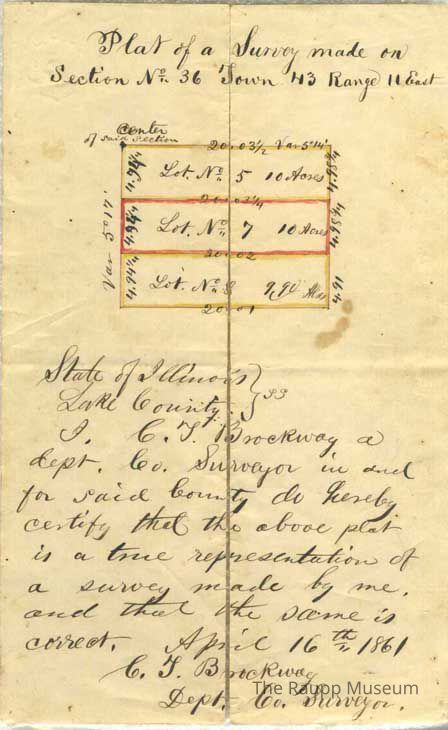 Plat of a Survey made on
Section No. 36 Town 43 Range 11 East
Center
of said Section
20.03½ Var 5°14'
4.94¼
Lot. No. 5 10 Acres
4.95¾
20.03¼
Var 5°17'
4.94¼
Lot. No. 7 10 Acres
4.95¾
20.02
4.94¼
Lot. No. 8 9.90 Acres
4.91
20.01
State of Illinois } SS
Lake County. }
I. C. T. Brockway a
dept. Co. Surveyor in and
for said County do hereby
certify that the above plat
is a true representation of
a survey made by me.
and that the same is
correct. April 16th 1861
C. T. Brockway
Dept. Co. Surveyor.
The Raupp Museum